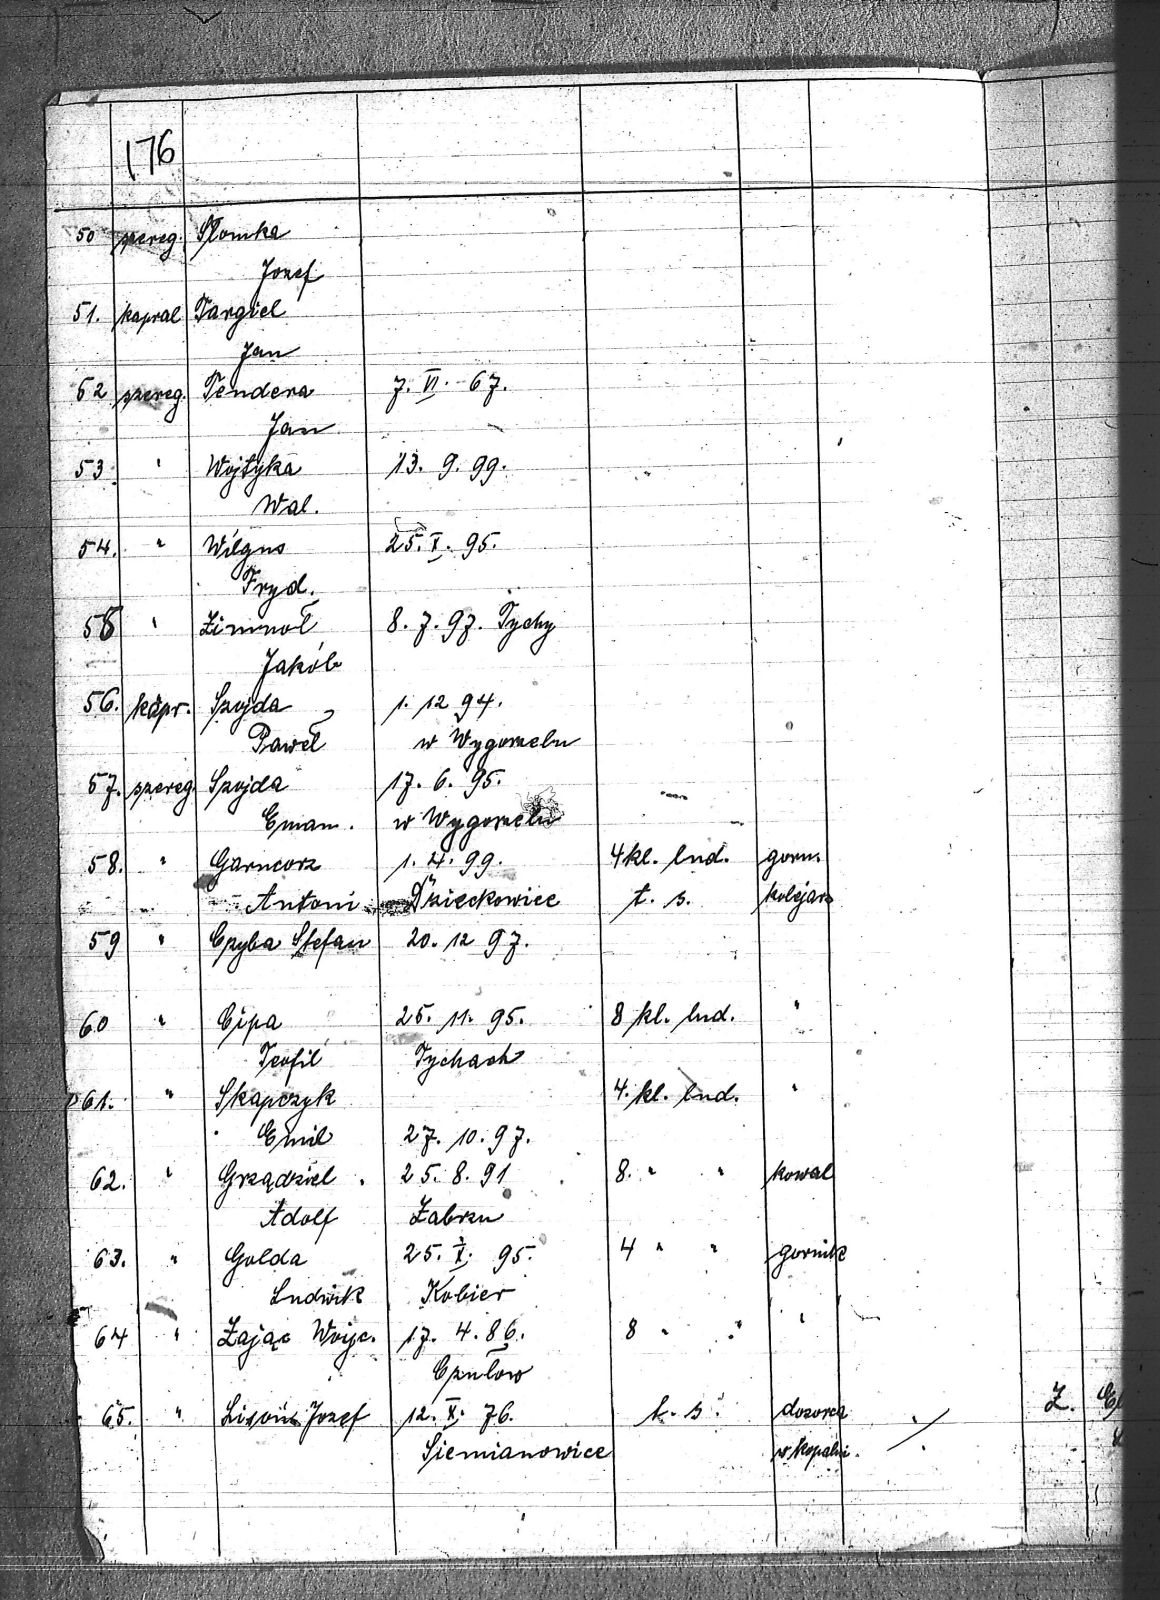 176
50 szereg. Słomka
Jozef
51. kapral Targiel
Jan
52 szereg. Tendera 7. VI. 67.
Jan
53 " Wojtyka 13. 9. 99.
Wal.
54. " Wilgus 25. X. 95.
Fryd.
55 " Zimnoł 8. 7. 97. Tychy
Jakób
56. kapr. Szojda 1. 12 94.
Paweł w Wygorzelu
57. szereg. Szojda 17. 6. 95.
Eman. w Wygorzelu
58. " Garncorz 1. 4. 99. 4 kl. lud. gorn.
Antoni Dzieckowice t. s. kolejarz
59 " Czyba Stefan 20. 12 97.
60 " Cipa 25. 11. 95. 8 kl. lud. "
Teofil Tychach
61. " Skapczyk 4. kl. lud. "
Emil 27. 10. 97.
62. " Grządziel 25. 8. 91 8. " " kowal
Adolf Zabrzu
63. " Golda 25. X. 95. 4 " " gornik
Ludwik Kobier
64 " Zając Wojc. 17. 4. 86. 8 " " "
Czułow
65. " Lisoń Jozef 12. X. 76. t. s. dozorca
Siemianowice w kopalni.
Z.